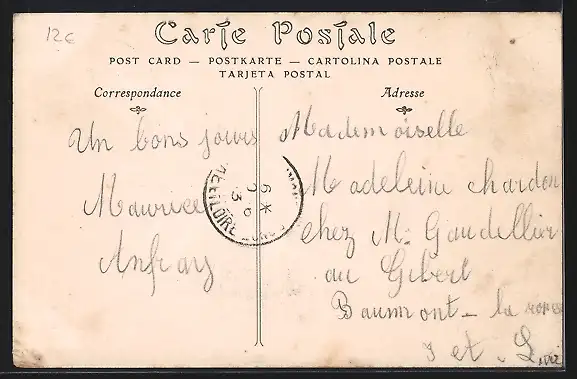 12€
Carte Postale
POST CARD — POSTKARTE — CARTOLINA POSTALE
TARJETA POSTAL
Correspondance
Adresse
Un bons jours
Maurice
Anfray
Mademoiselle
Madeleine chardon
chez M. Gaudellier
au Gibert
Baumont - la
I et. L.
ET LOIRE
6 *
9
3 6